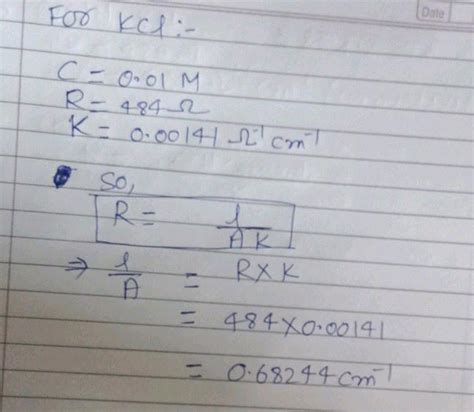 Date
For KCl:-
C = 0.01 M
R = 484 Ω
K = 0.00141 Ω⁻¹ cm⁻¹
So,
R = l / A K
⇒ l / A = R×K
= 484×0.00141
= 0.68244 cm⁻¹